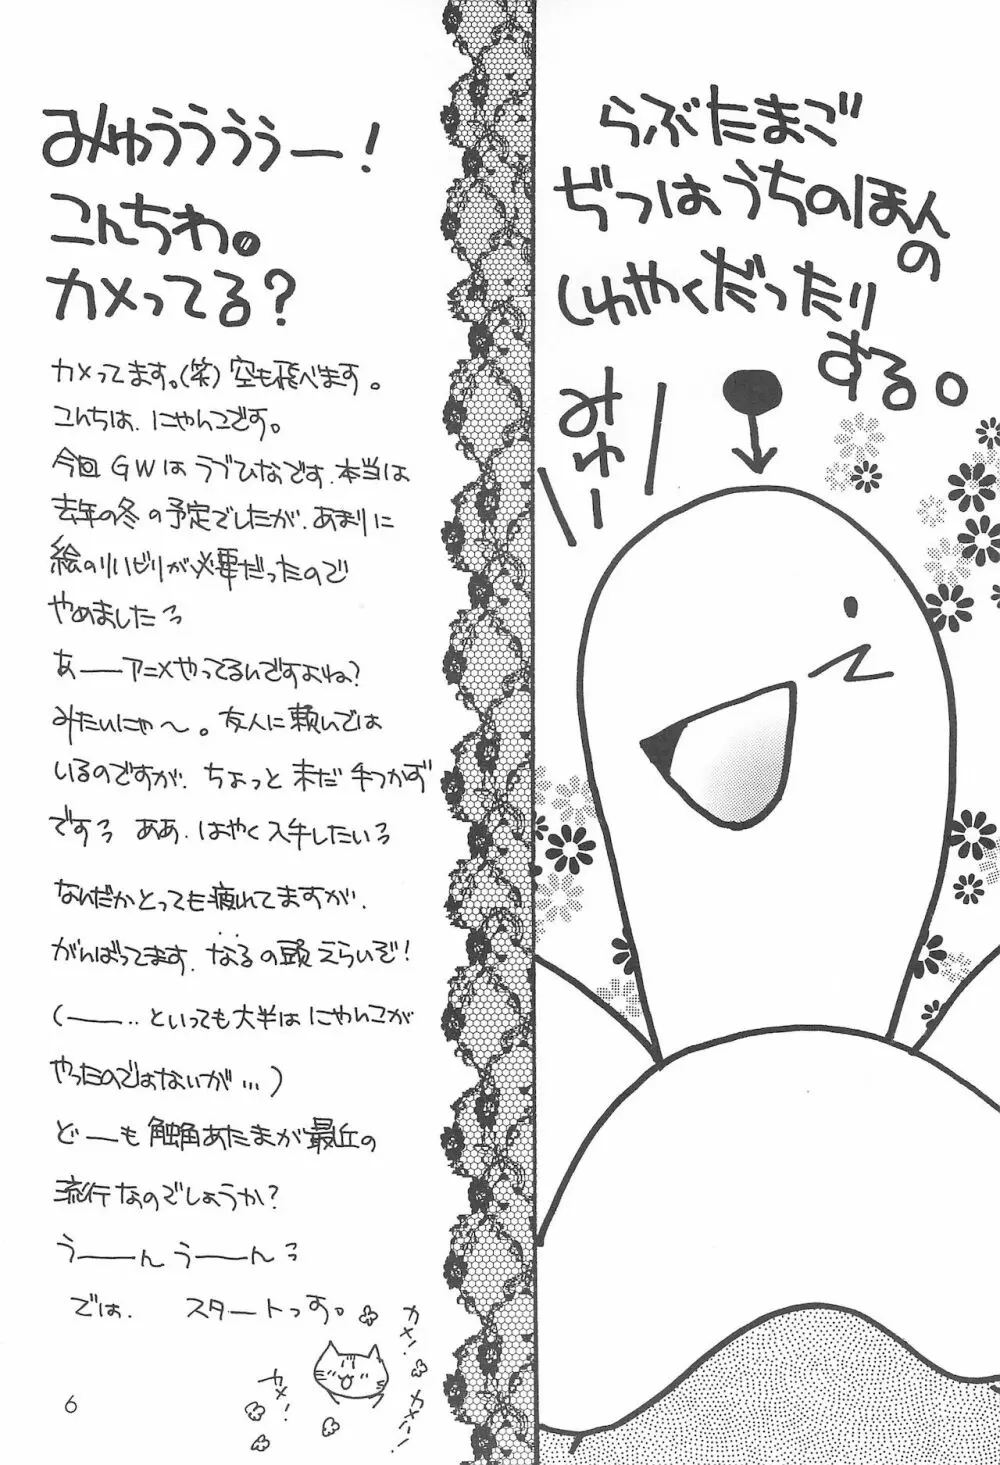 みゅうううぅー!
こんちわ。
カメってる?
カメってます。(笑)空も飛べます。
こんちは、にゃんこです。
今回GWはラブひなです、本当は
去年の冬の予定でしたが、あまりに
絵のリハビリが必要だったので
やめましたっ
あーーアニメやってるんですよね?
みたいにゃ〜。友人に頼んでは
いるのですが、ちょっと未だ手つかず
ですっ ああ、はやく入手したいっ
なんだかとっても疲れてますが、
がんばってます、なるの頭えらいぞ!
(ーー‥といっても大半はにゃんこが
やったのではないが…)
どーも触角あたまが最近の
流行なのでしょうか?
うーーんうーーんっ
では、スタートっす。
カメ!
カメ!
カメー!
6
らぶたまご
ぢつはうちのほん
の
しゅやくだったり
する。
みゅー